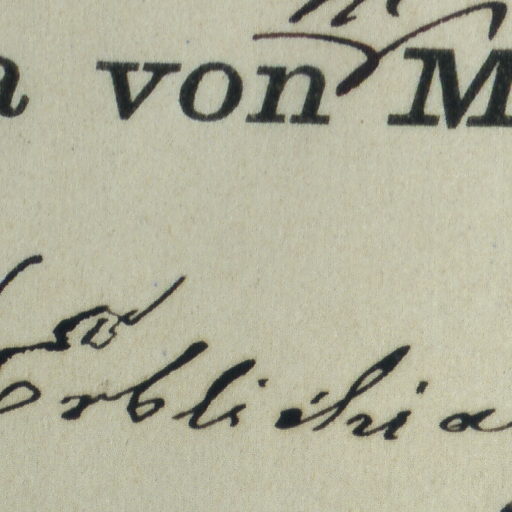 a von M
Erblichia